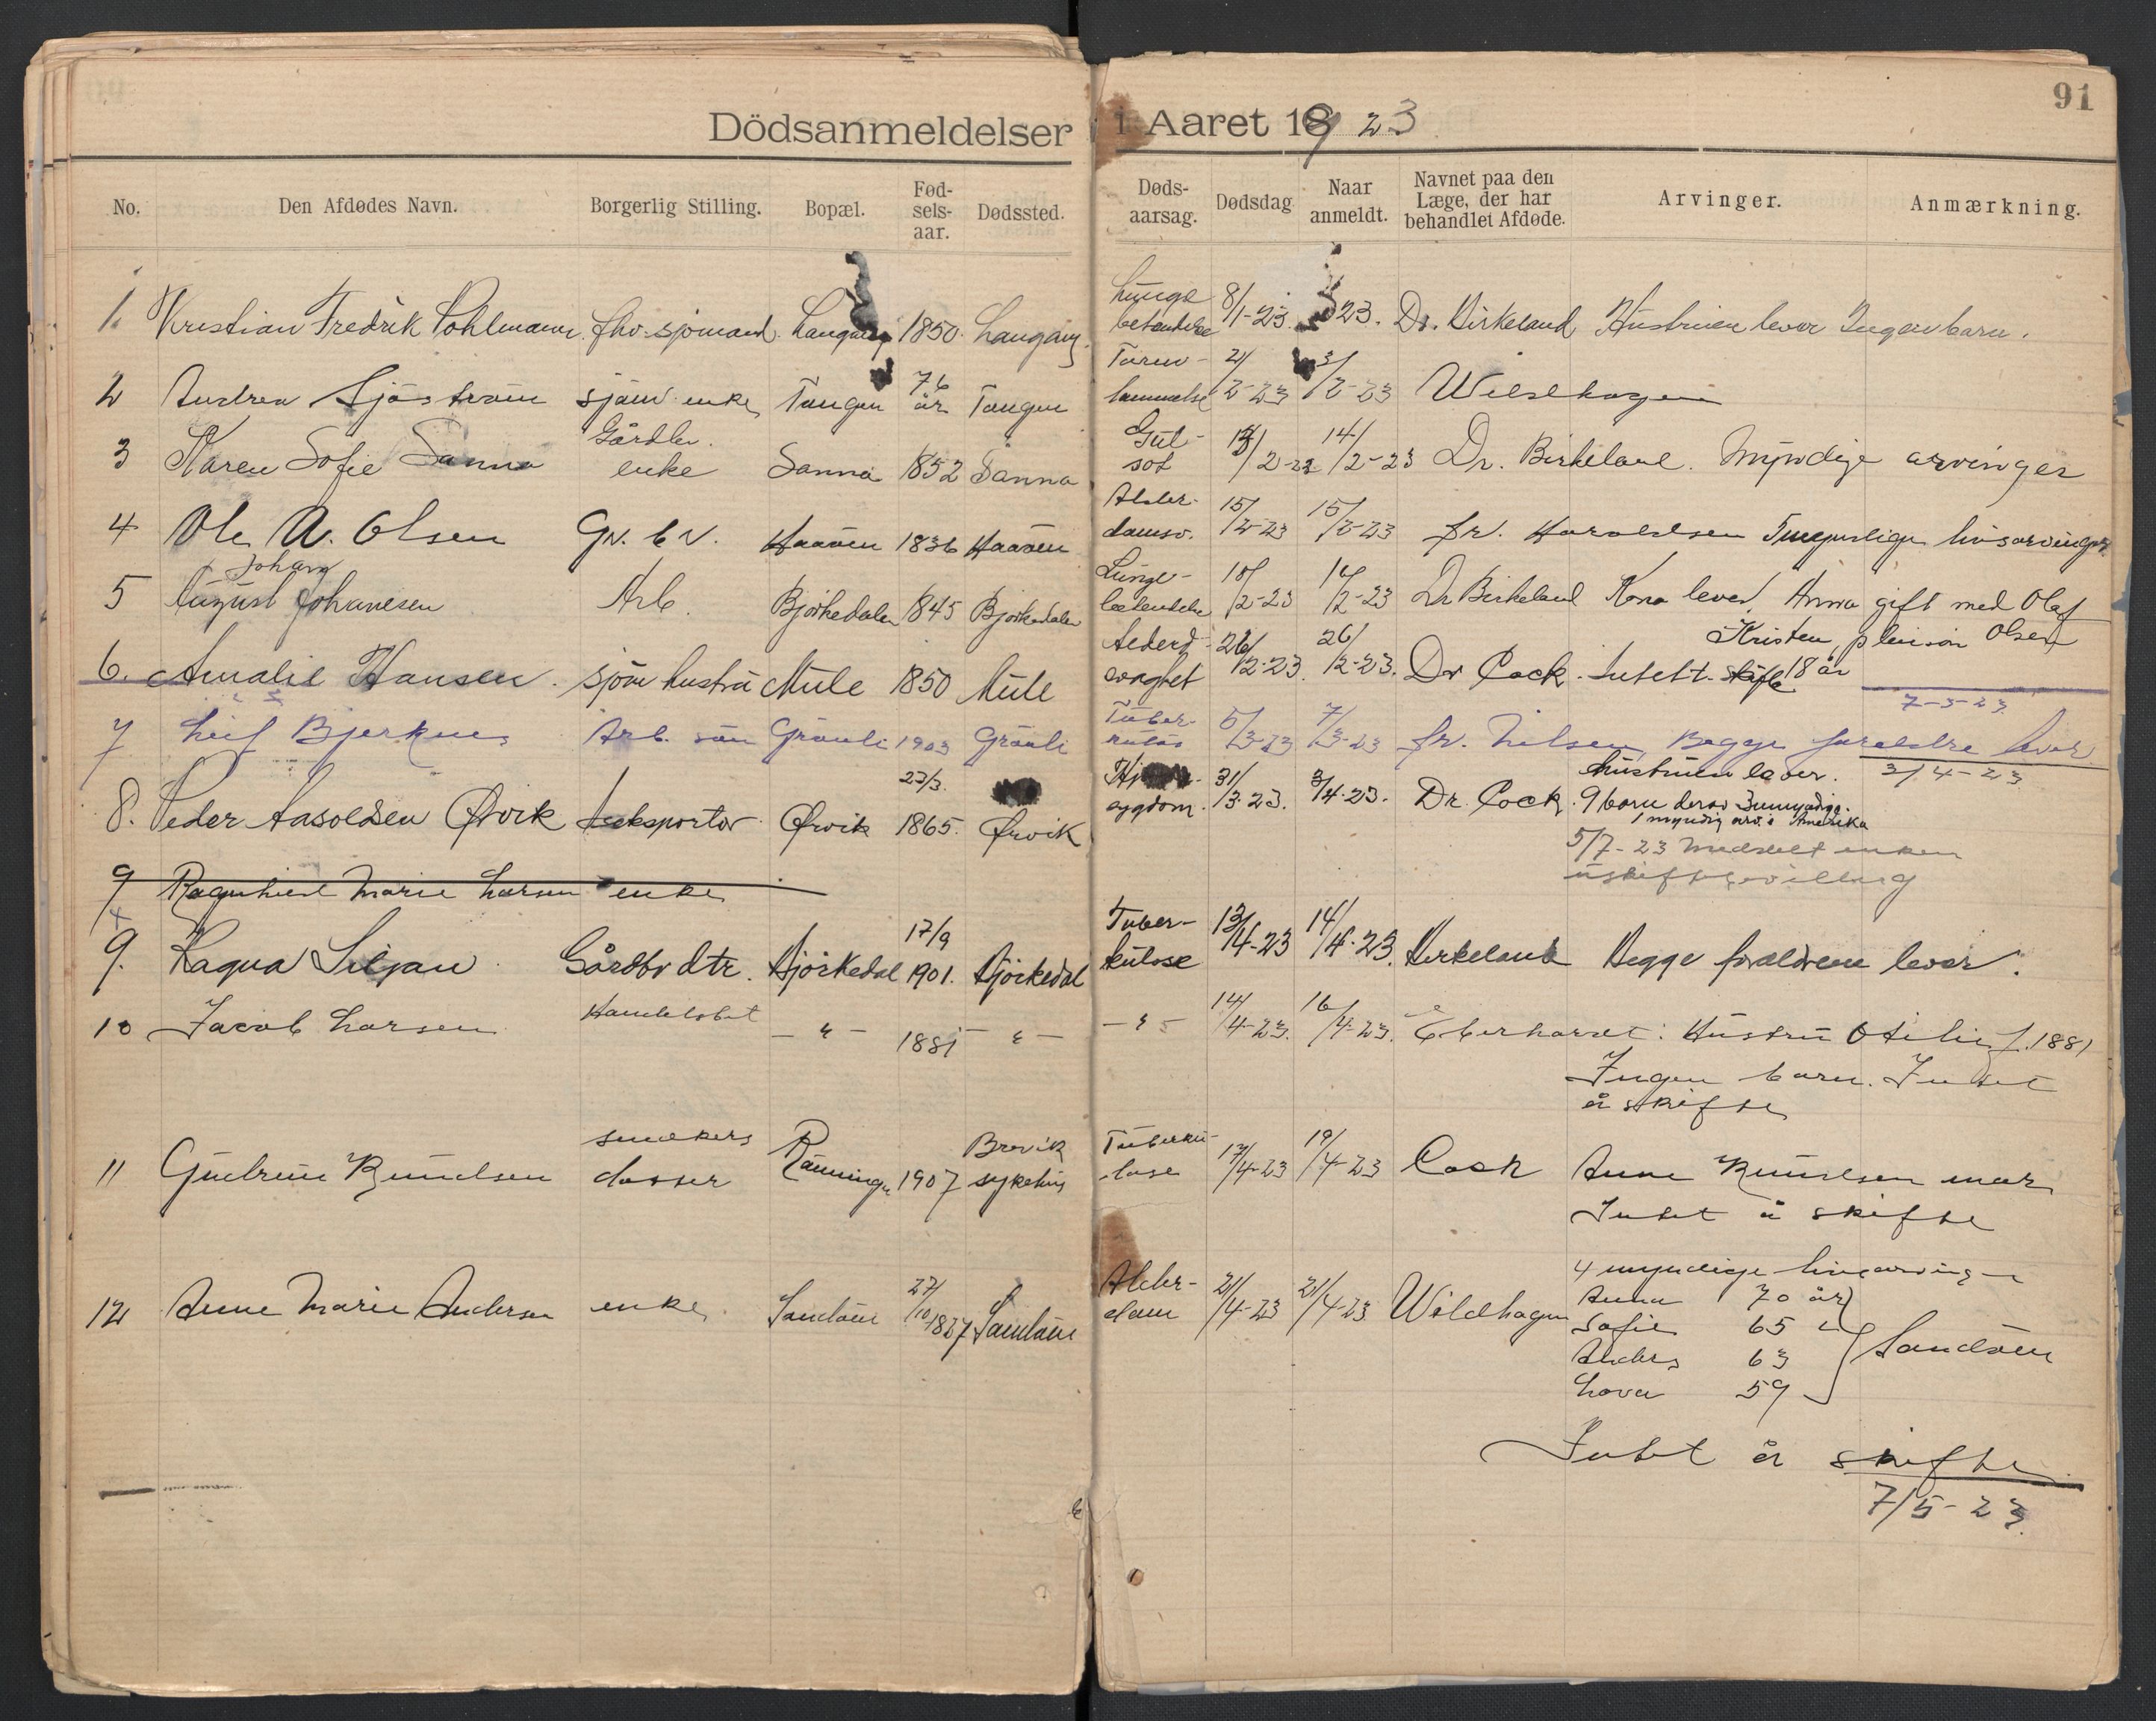 91
Dödsanmeldelser i Aaret 1923
No. Den Afdødes Navn. Borgerlig Stilling. Bopæl. Fødselsaar. Dødssted. Dødsaarsag. Dødsdag Naar anmeldt. Navnet paa den Læge, der har behandlet Afdøde. Arvinger. Anmærkning.
1. Kristian Fredrik Pohlmann. fhv. sjömand. Langang 1850. Langang. Lunge betendelse 8/1-23. 23. Dr. Birkeland Hustruen lever Ingen barn.
2 Andrea Sjöström sjöm. enke Tangen 76 år Tangen lammelse 2/2-23 3/2-23 Wildhagen
3 Karen Sofie Sanna Gårdbr. enke Sanna 1852 Sanna Gulsot 14/2-23 Dr. Birkeland. Myndige arvinger
4 Ole A. Olsen Gv. Haaøen 1836 Haaøen Alderdomsv. 15/2-23 15/2-23 fr. Haroldsen livsarvinger
5 Johan August Johanesen Arb. Bjørkedalen 1845 Bjørkedalen Lunge- betendelse /2-23 /2-23 Dr Birkeland Kona lever. Anna gift med Olaf
Kristen Olsen 18 år
6. Amalie Hansen. sjöm hustru Mule 1850 Mule 26/2-23. 26/2-23. Dr Cock. Intet t. skifte
7-3-23
7 Leif Bjerknes Arb. sön Grönli 1903 Grönli Tuberkulös 5/3-23 7/3-23 fr. Nilsen Begge foreldre lever
3/4-23
8. Peder Aasoldsen Ørvik Ørvik 23/3. 1865. Ørvik sygdom. 31/3-23. 3/4-23. Dr. Cock. Hustruen lever.
9 barn derav 3 umyndige.
1 myndig arv. i Amerika
5/7-23 Meddelt enken
uskiftebevilling
9 Ragnhild Marie Larsen enke
9. Ragna Siljan Gårdbr dtr. Bjørkedal 17/9 1901. Bjørkedal Tuber- kulose 13/4-23 14/4-23. Birkeland Begge forældrene lever.
10 Jacob Larsen Handelsbet - " - 1881 - " - - " - 14/4-23. 16/4-23. Eberhardt: Hustru Otilie f. 1881
Ingen barn. Intet
å skifte
11 Gudrun Knudsen smekers datter Rönningen 1907 Brevik sykehus Tuberku- lose 17/4-23 19/4-23 Cock Anne Knudsen mor
Intet å skifte
12 Anne Marie Andersen enke Sandöen 27/10 1827 Sandöen Alder- dom 21/4-23 21/4-23 Wildhagen 4 myndige livsarvinger
Anna 70 år
Sofie 65 "
Anders 63
Lova 59
Sandöen
Intet å skifte
7/5-23.